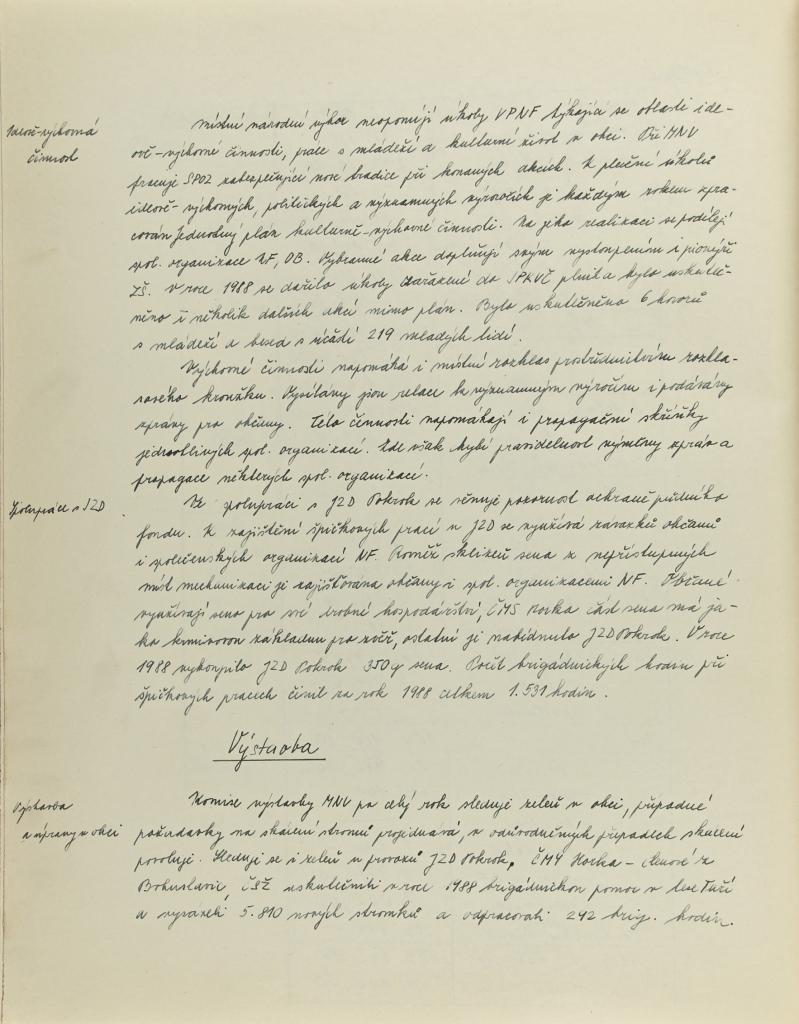 Ideově-výchovná
činnost
Místní národní výbor neopomíjí úkoly VPNF týkající se oblasti ide-
ově-výchovné činnosti, práce s mládeží a kulturní život v obci. Při MNV
pracuje SPOZ zabezpečující nové tradice při konaných akcích. K plnění úkolů
ideově-výchovných, politických a významných výročích je každým rokem zpra-
cován Jednotný plán kulturně-výchovné činnosti. Na jeho realizaci se podílejí
spol. organizace NF, OB. Vybrané akce doplňují svým vystoupením i pionýři
ZŠ. V roce 1988 se dařilo úkoly zařazené do JPKVČ plnit a bylo uskuteč-
něno i několik dalších akcí mimo plán. Bylo uskutečněno 6 hovorů
s mládeží a besed s účastí 219 mladých lidí.
Výchovné činnosti napomáhá i místní rozhlas prostřednictvím rozhla-
sového kroužku. Vysílány jsou relace k významným výročím i podávány
zprávy pro občany. Této činnosti napomáhají i propagační skříňky
jednotlivých spol. organizací. Zde však chybí pravidelnost výměny zpráv a
propagace některých spol. organizací.
Spolupráce s JZD
Ve spolupráci s JZD Pokrok se věnuje pozornost ochraně půdního
fondu. K zajištění špičkových prací v JZD se využívá závazků občanů
i společenských organizací NF. Rovněž sklizeň sena z nepřístupných
míst mechanizaci je zajišťována občany i spol. organizacemi NF. Občané
využívají seno pro své drobné hospodářství, ČMS Horka část sena má ja-
ko krmivovou základnu pro zvěř, ostatní je nabídnuto JZD Pokrok. V roce
1988 vykoupilo JZD Pokrok 350 q sena. Počet brigádnických hodin při
špičkových pracech činil za rok 1988 celkem 1.531 hodin.
Výstavba
Výstavba
a úpravy v obci
Komise výstavby MNV po celý rok sleduje zeleň v obci, případné
požadavky na skácení stromů projednává, v odůvodněných případech skácení
povoluje. Sleduje se i zeleň v provozu JZD Pokrok. ČMS Horka - členové z
Bohuslavic, ČSŽ uskutečnili v roce 1988 brigádnickou pomoc v lese Tuří
a vysázeli 5.810 nových stromků a odpracovali 242 brig. hodin.